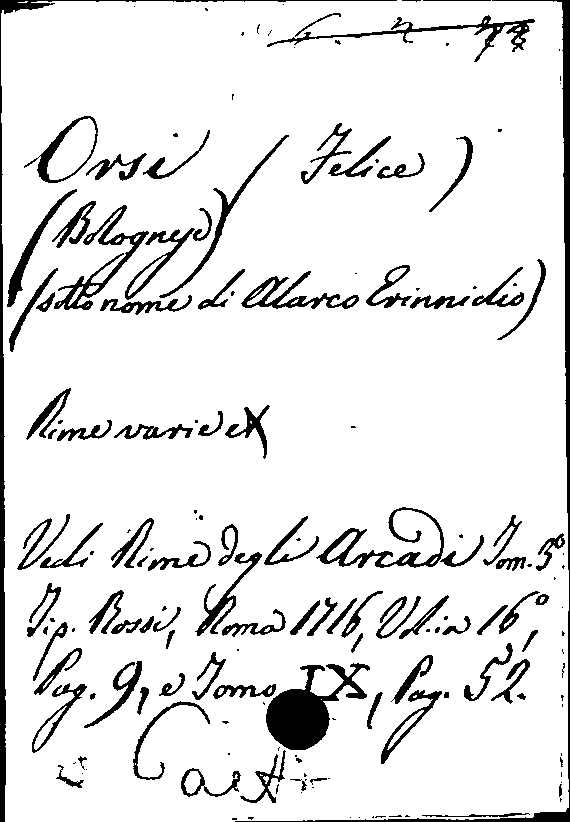 Orsi (Felice)
(Bolognese)
(sotto nome di Alarco Erinnidio)
Rime varie
Vedi Rime degli Arcadi Tom. 3º
Tip. Rossi, Roma 1716, Vol. in 16º,
Pag. 9, e Tomo IX, Pag. 52.